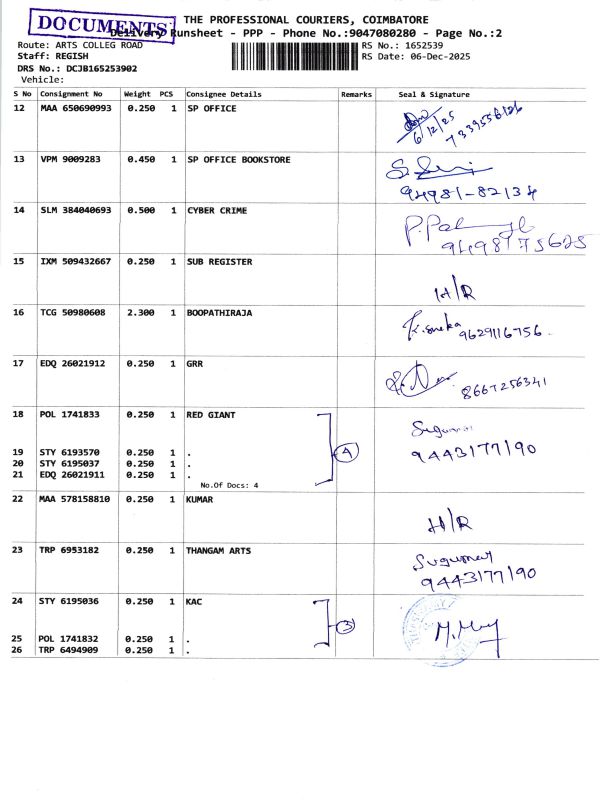 THE PROFESSIONAL COURIERS, COIMBATORE
DOCUMENTS
Delivery Runsheet - PPP - Phone No.:9047080280 - Page No.:2
Route: ARTS COLLEG ROAD
RS No.: 1652539
Staff: REGISH
RS Date: 06-Dec-2025
DRS No.: DCJB165253902
Vehicle:
S No Consignment No Weight PCS Consignee Details Remarks Seal & Signature
12 MAA 650690993 0.250 1 SP OFFICE
6/12/25
13 VPM 9009283 0.450 1 SP OFFICE BOOKSTORE
94981-82134
14 SLM 384040693 0.500 1 CYBER CRIME
9498175625
15 IXM 509432667 0.250 1 SUB REGISTER
H/R
16 TCG 50980608 2.300 1 BOOPATHIRAJA
9629116756
17 EDQ 26021912 0.250 1 GRR
8667256341
18 POL 1741833 0.250 1 RED GIANT
19 STY 6193570 0.250 1 .
9443177190
20 STY 6195037 0.250 1 .
21 EDQ 26021911 0.250 1 .
No.Of Docs: 4
22 MAA 578158810 0.250 1 KUMAR
H/R
23 TRP 6953182 0.250 1 THANGAM ARTS
9443177190
24 STY 6195036 0.250 1 KAC
3
25 POL 1741832 0.250 1 .
26 TRP 6494909 0.250 1 .